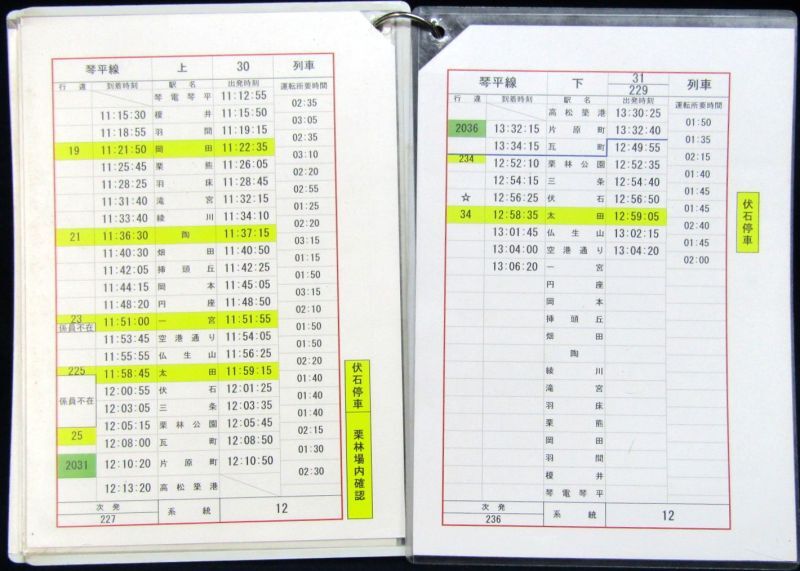 琴平線 上 30 列車
行違 到着時刻 駅名 出発時刻 運転所要時間
琴電琴平 11:12:55
02:35
11:15:30 榎井 11:15:50
03:05
11:18:55 羽間 11:19:15
02:35
19 11:21:50 岡田 11:22:35
03:10
11:25:45 栗熊 11:26:05
02:20
11:28:25 羽床 11:28:45
02:55
11:31:40 滝宮 11:32:15
01:25
11:33:40 綾川 11:34:10
02:20
21 11:36:30 陶 11:37:15
03:15
11:40:30 畑田 11:40:50
01:15
11:42:05 挿頭丘 11:42:25
01:50
11:44:15 岡本 11:45:05
03:15
11:48:20 円座 11:48:50
02:10
23 係員不在 11:51:00 一宮 11:51:55
01:50
11:53:45 空港通り 11:54:05
01:50
11:55:55 仏生山 11:56:25
02:20
225 11:58:45 太田 11:59:15
01:40
係員不在 12:00:55 伏石 12:01:25
01:40
12:03:05 三条 12:03:35
01:40
12:05:15 栗林公園 12:05:45
02:15
25 12:08:00 瓦町 12:08:50
01:30
2031 12:10:20 片原町 12:10:50
02:30
12:13:20 高松築港
次発 227 系統 12
伏石停車
栗林場内確認
琴平線 下 31 229 列車
行違 到着時刻 駅名 出発時刻 運転所要時間
高松築港 13:30:25
01:50
2036 13:32:15 片原町 13:32:40
01:35
13:34:15 瓦町 12:49:55
02:15
234 12:52:10 栗林公園 12:52:35
01:40
12:54:15 三条 12:54:40
01:45
☆ 12:56:25 伏石 12:56:50
01:45
34 12:58:35 太田 12:59:05
02:40
13:01:45 仏生山 13:02:15
01:45
13:04:00 空港通り 13:04:20
02:00
13:06:20 一宮
円座
岡本
挿頭丘
畑田
陶
綾川
滝宮
羽床
栗熊
岡田
羽間
榎井
琴電琴平
次発 236 系統 12
伏石停車